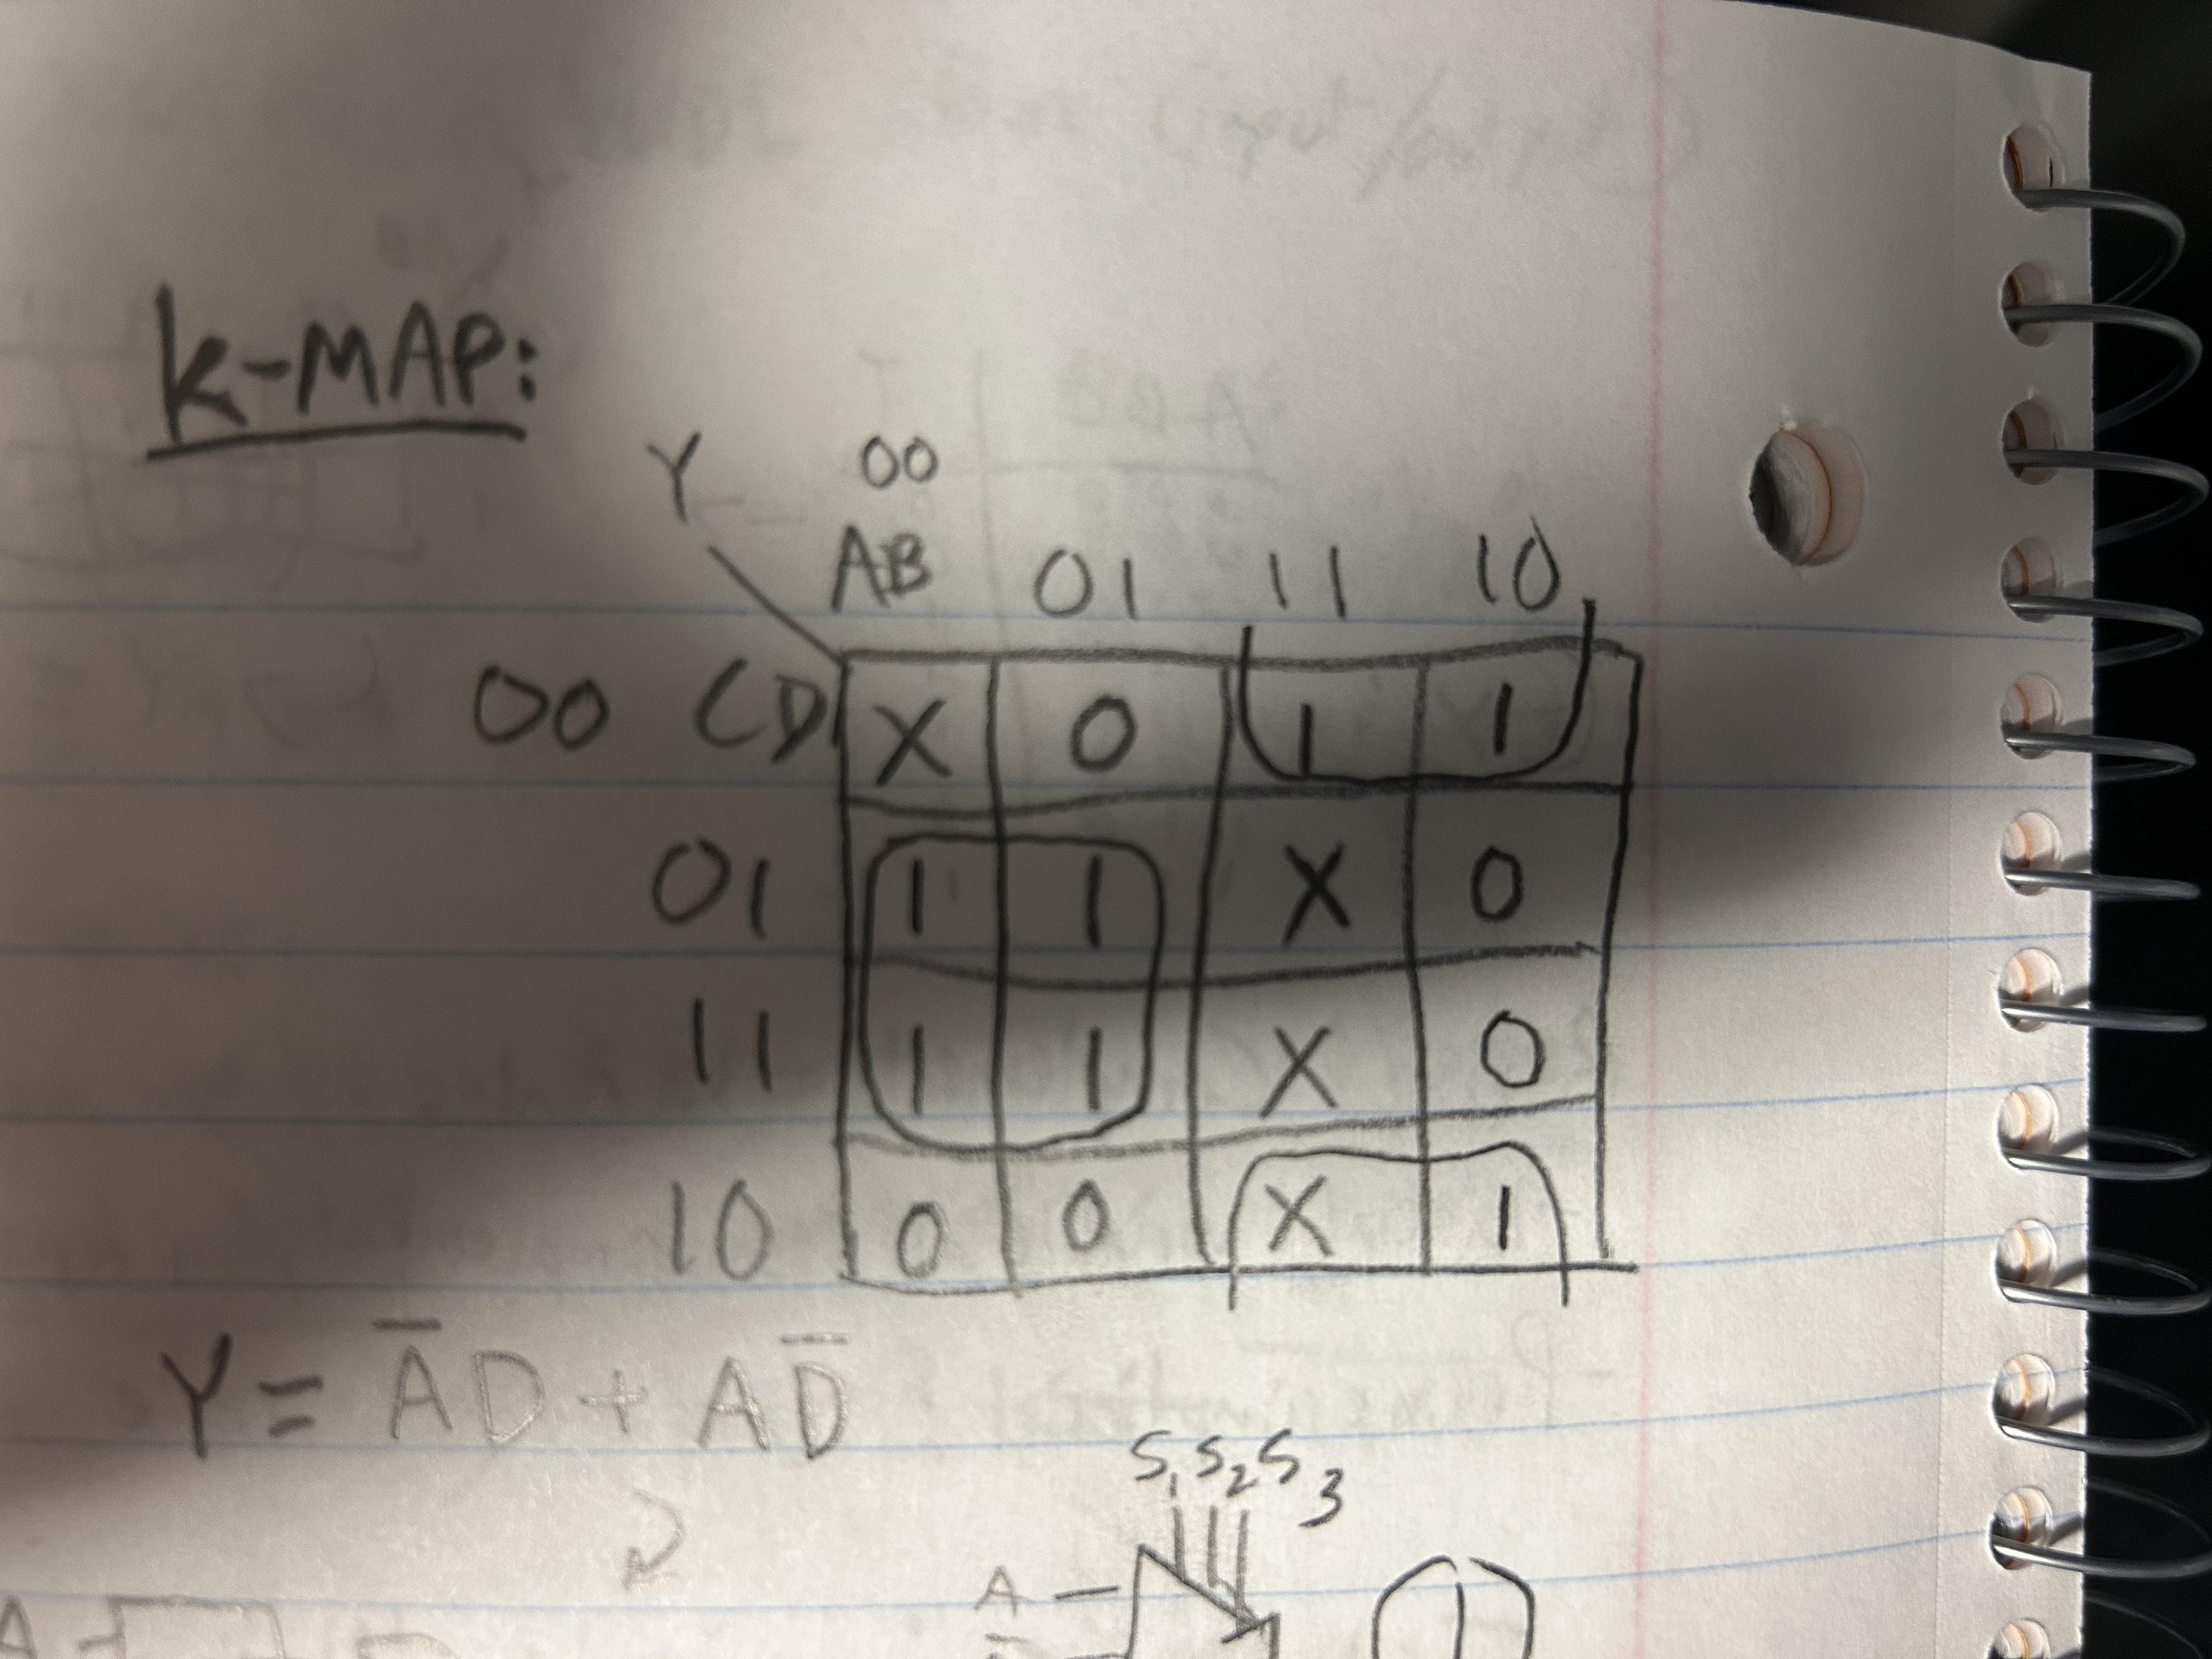 K-MAP:
Y AB 00 01 11 10
CD
00 X 0 1 1
01 1 1 X 0
11 1 1 X 0
10 0 0 X 1
Y = A̅D + AD̅
S₁ S₂ S 3
A